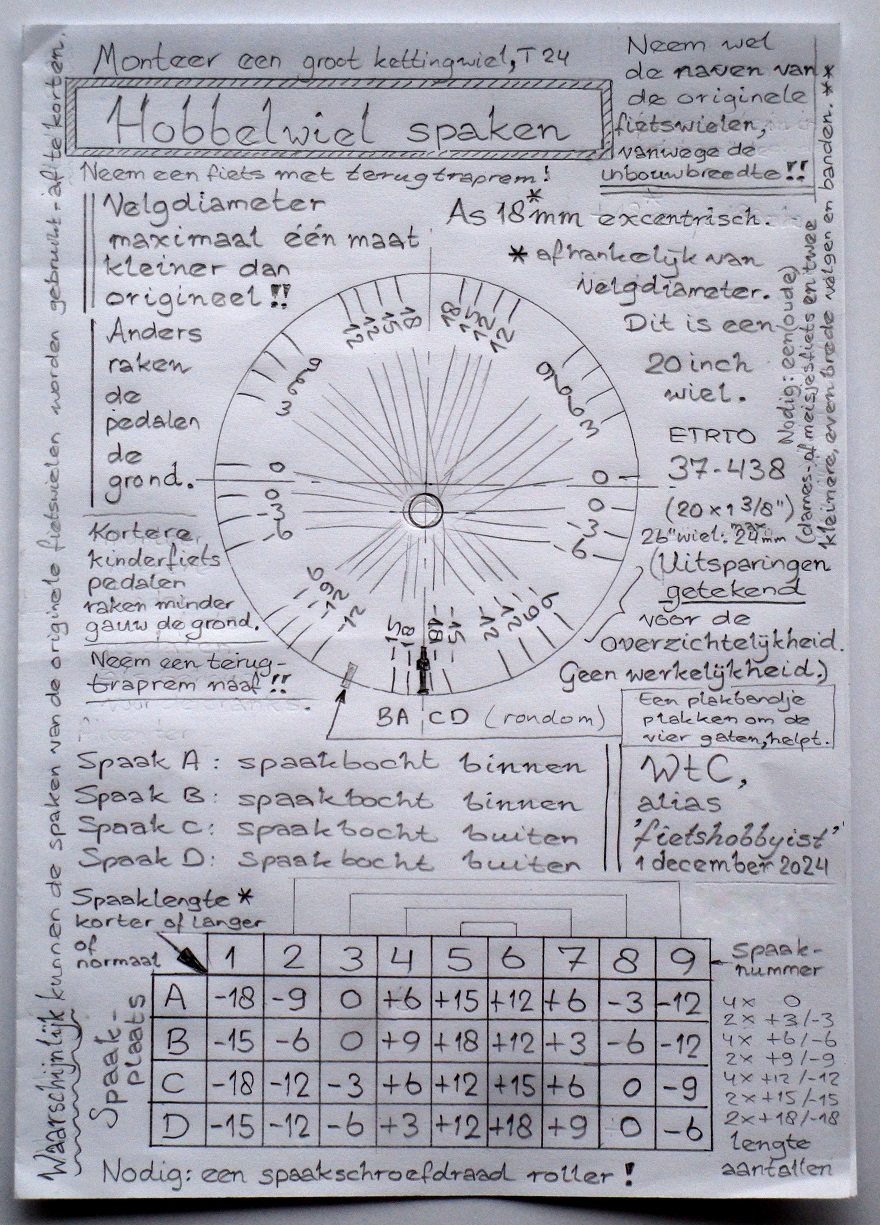 Monteer een groot kettingwiel, T24
Hobbelwiel spaken
Neem een fiets met terugtraprem!
Neem wel
de naven van
de originele
fietswielen,
vanwege de
inbouwbreedte!!
Velgdiameter
maximaal één maat
kleiner dan
origineel!!
Anders
raken
de
pedalen
de
grond.
Kortere
kinderfiets
pedalen
raken minder
gauw de grond.
Neem een terug-
traprem naaf!!
As 18* mm excentrisch.
* afhankelijk van
velgdiameter.
Dit is een
20 inch
wiel.
ETRTO
37-438
(20 x 1 3/8")
26" wiel: max 24 mm
(Uitsparingen
getekend
voor de
overzichtelijkheid.
Geen werkelijkheid.)
Nodig: een (oude)
(dames- of meisjesfiets en twee
kleinere, even brede velgen en banden. **
Waarschijnlijk kunnen de spaken van de originele fietswielen worden gebruikt - af te korten.
12 12 15 18 18 15 12 12
9 6 6 3
9 6 6 3
0 0 -3 -6
0 0 -3 -6
-6 -9 -12 -12 -15 -18 -18 -15 -12 -12 -9 -6
BA CD (rondom)
Een plakbandje
plakken om de
vier gaten, helpt.
Spaak A: spaakbocht binnen
Spaak B: spaakbocht binnen
Spaak C: spaakbocht buiten
Spaak D: spaakbocht buiten
WtC,
alias
'fietshobbyist'
1 december 2024
Spaaklengte *
korter of langer
of
normaal
1 2 3 4 5 6 7 8 9
Spaak-
nummer
Spaak-
plaats
A -18 -9 0 +6 +15 +12 +6 -3 -12
B -15 -6 0 +9 +18 +12 +3 -6 -12
C -18 -12 -3 +6 +12 +15 +6 0 -9
D -15 -12 -6 +3 +12 +18 +9 0 -6
4x 0
2x +3/-3
4x +6/-6
2x +9/-9
4x +12/-12
2x +15/-15
2x +18/-18
lengte
aantallen
Nodig: een spaakschroefdraad roller!